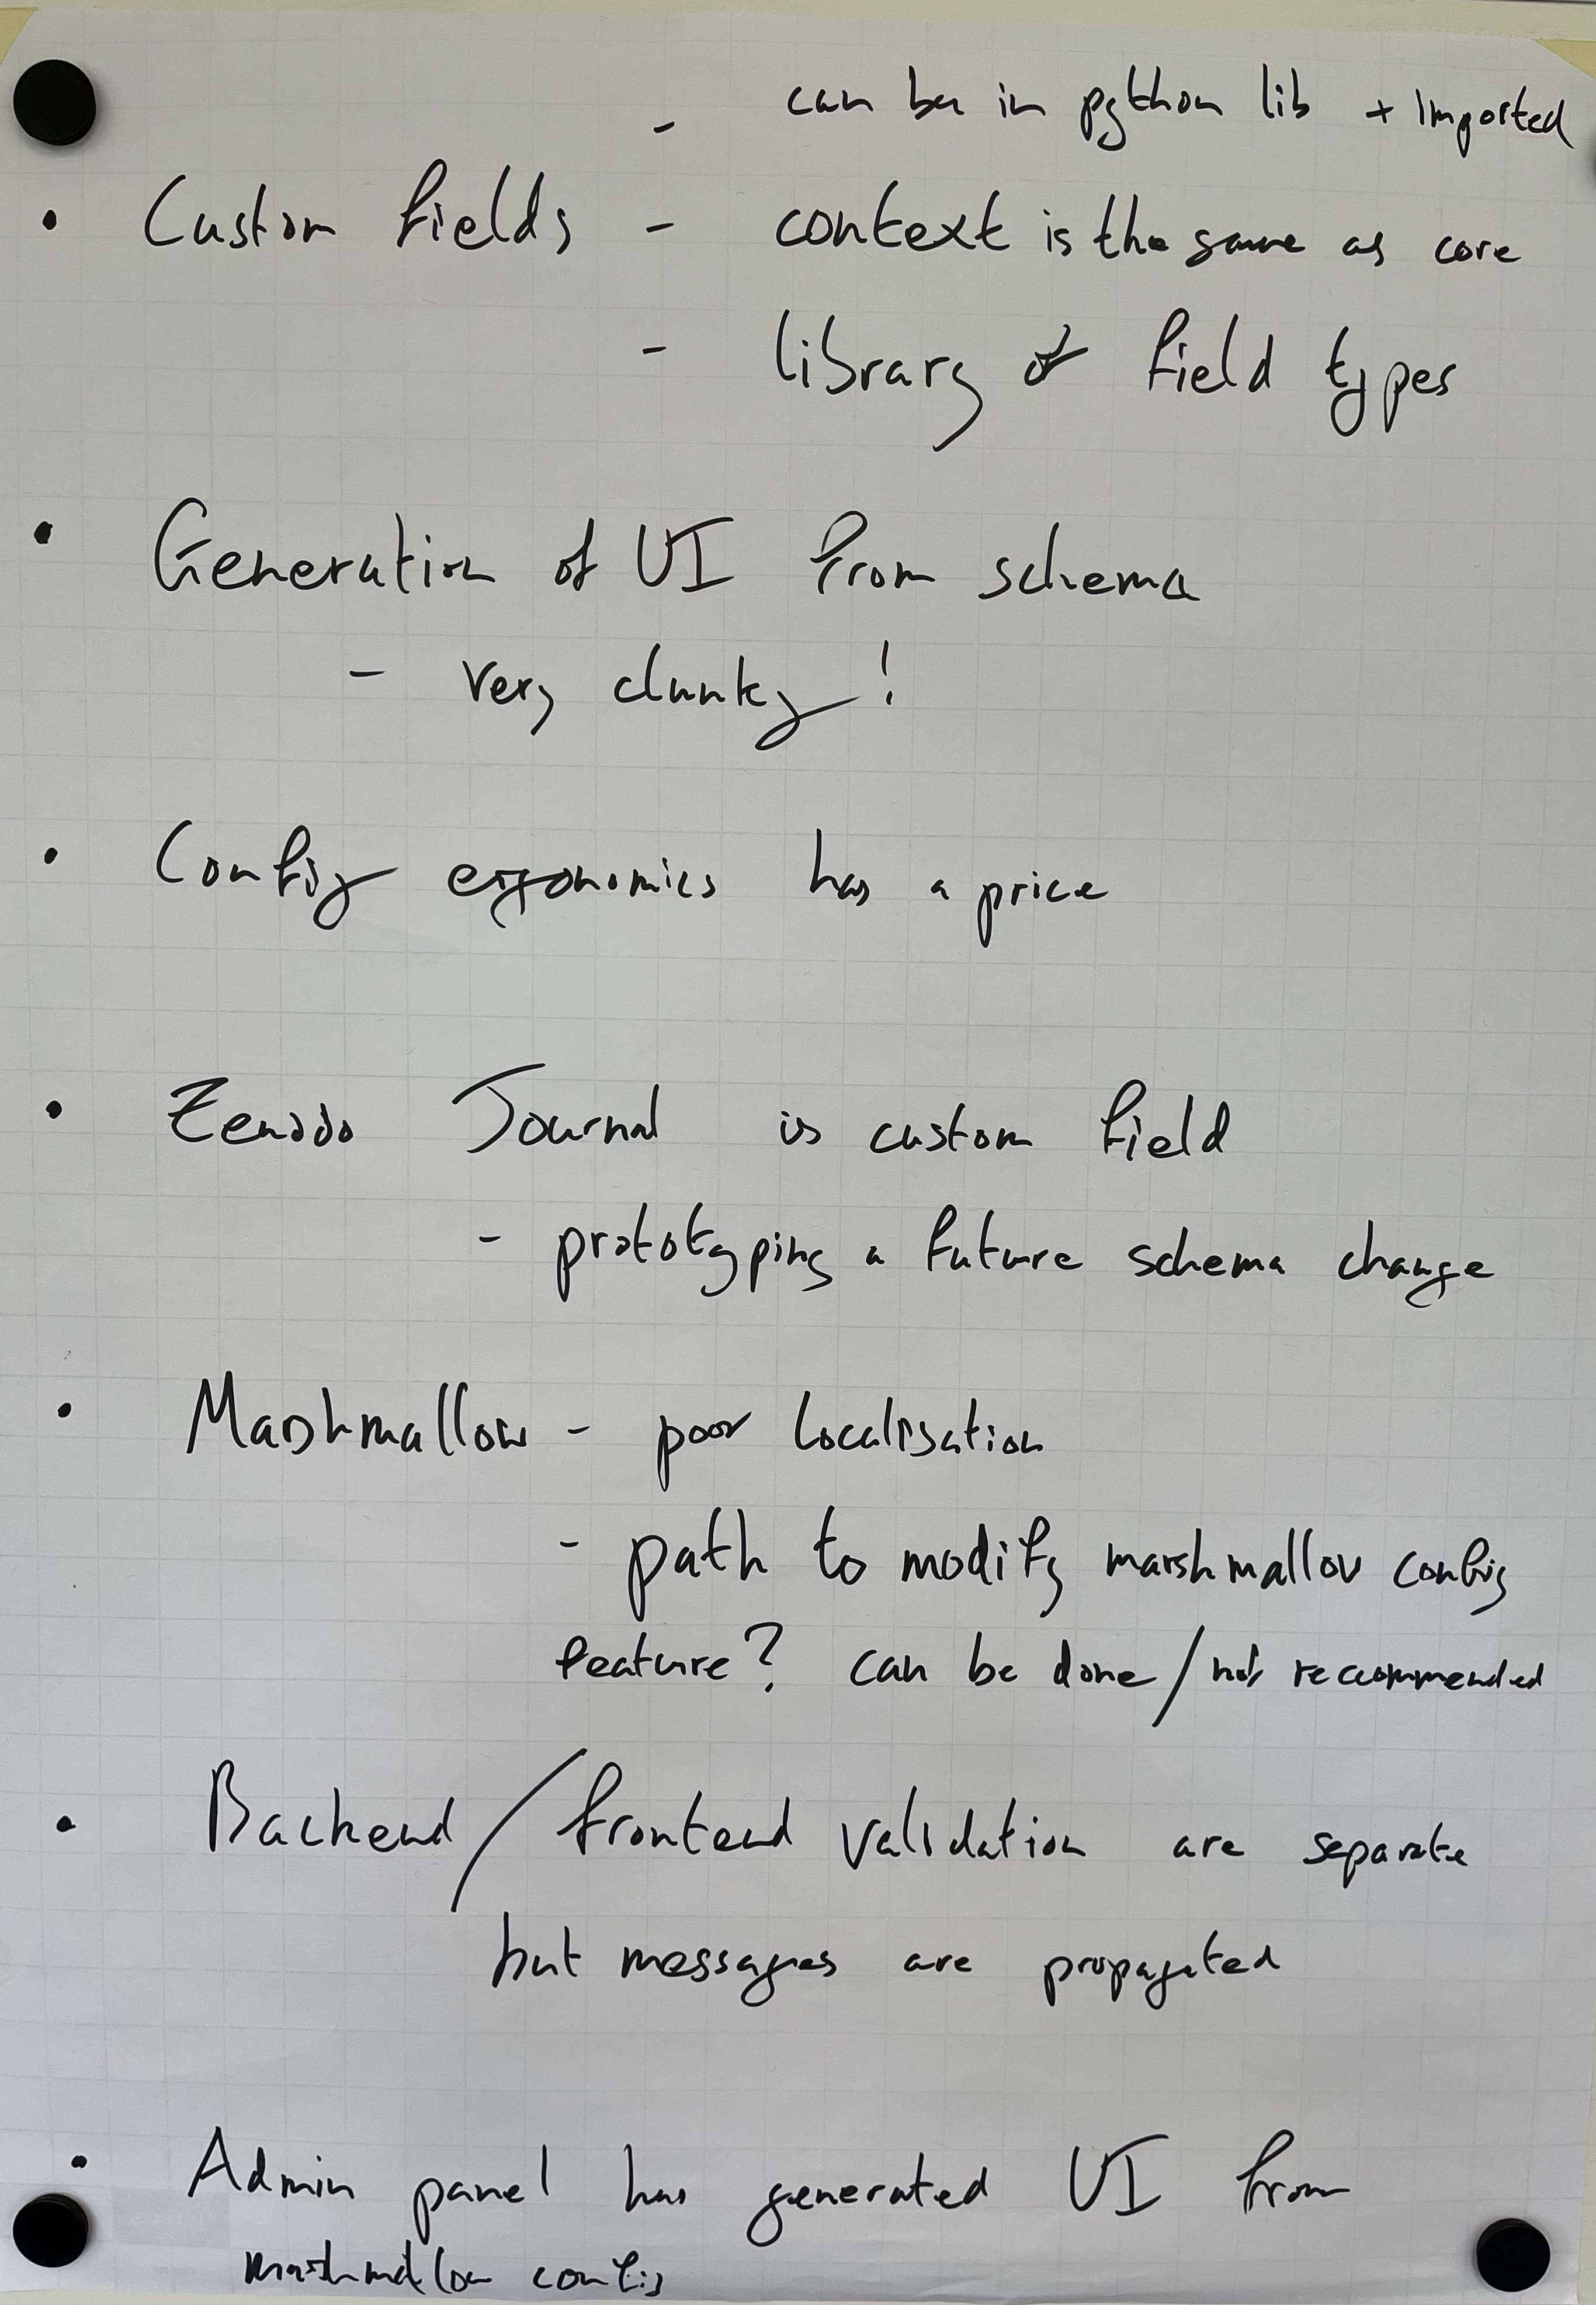 - can be in python lib + imported
• Custom fields - context is the same as core
- library of field types
• Generation of UI from schema
- very clunky!
• Config ergonomics has a price
• Zenodo Journal is custom field
- prototyping a future schema change
• Marshmallow - poor localisation
- path to modify marshmallow config
feature? can be done / not recommended
• Backend / frontend validation are separate
but messages are propagated
• Admin panel has generated UI from
marshmallow config